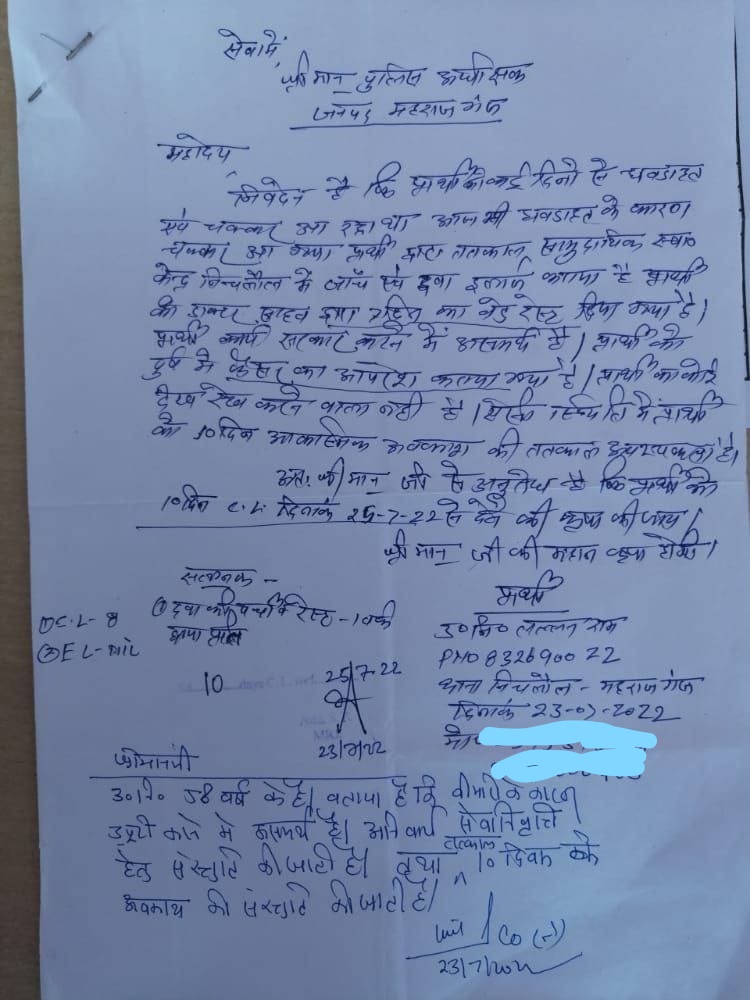 सेवा में,
श्रीमान पुलिस अधीक्षक
जनपद महराजगंज
महोदय,
निवेदन है कि प्रार्थी को कई दिनों से घबडाहट
एवं चक्कर आ रहा था आज भी घबडाहट के कारण
चक्कर आ गया प्रार्थी द्वारा तत्काल सामुदायिक स्वा०
केन्द्र निचलौल में जाँच एवं दवा इलाज कराया है प्रार्थी
को डाक्टर साहब द्वारा दिन का बेड रेस्ट दिया गया है।
प्रार्थी कार्य सरकार करने में असमर्थ है। प्रार्थी को
पूर्व में कैंसर का आपरेशन कराया गया है। प्रार्थी का कोई
देख रेख करने वाला नहीं है। ऐसी स्थिति में प्रार्थी
को 10 दिन आकस्मिक अवकाश की तत्काल आवश्यकता है।
अतः श्रीमान जी से अनुरोध है कि प्रार्थी को
10 दिन C.L. दिनांक 25-7-22 से देने की कृपा की जाय।
श्रीमान जी की महान कृपा होगी।
संलग्नक -
① दवा की पर्ची व रेस्ट - 1 वर्क
छाया प्रति
① C.L - 8
② E L - NIL
10
25/7-22
23/7/22
प्रार्थी
उ०नि० लल्लन राम
PNO 832690022
थाना निचलौल - महराजगंज
दिनांक 23-07-2022
मो
श्रीमानजी
उ०नि० 58 वर्ष के है। बताया है कि बीमारी के कारण
ड्यूटी करने में असमर्थ है। अनिवार्य सेवानिवृत्ति
हेतु संस्तुति की जाती है। तथा तत्काल 10 दिवस के
अवकाश की संस्तुति की जाती है।
CO (नि)
23/7/2022